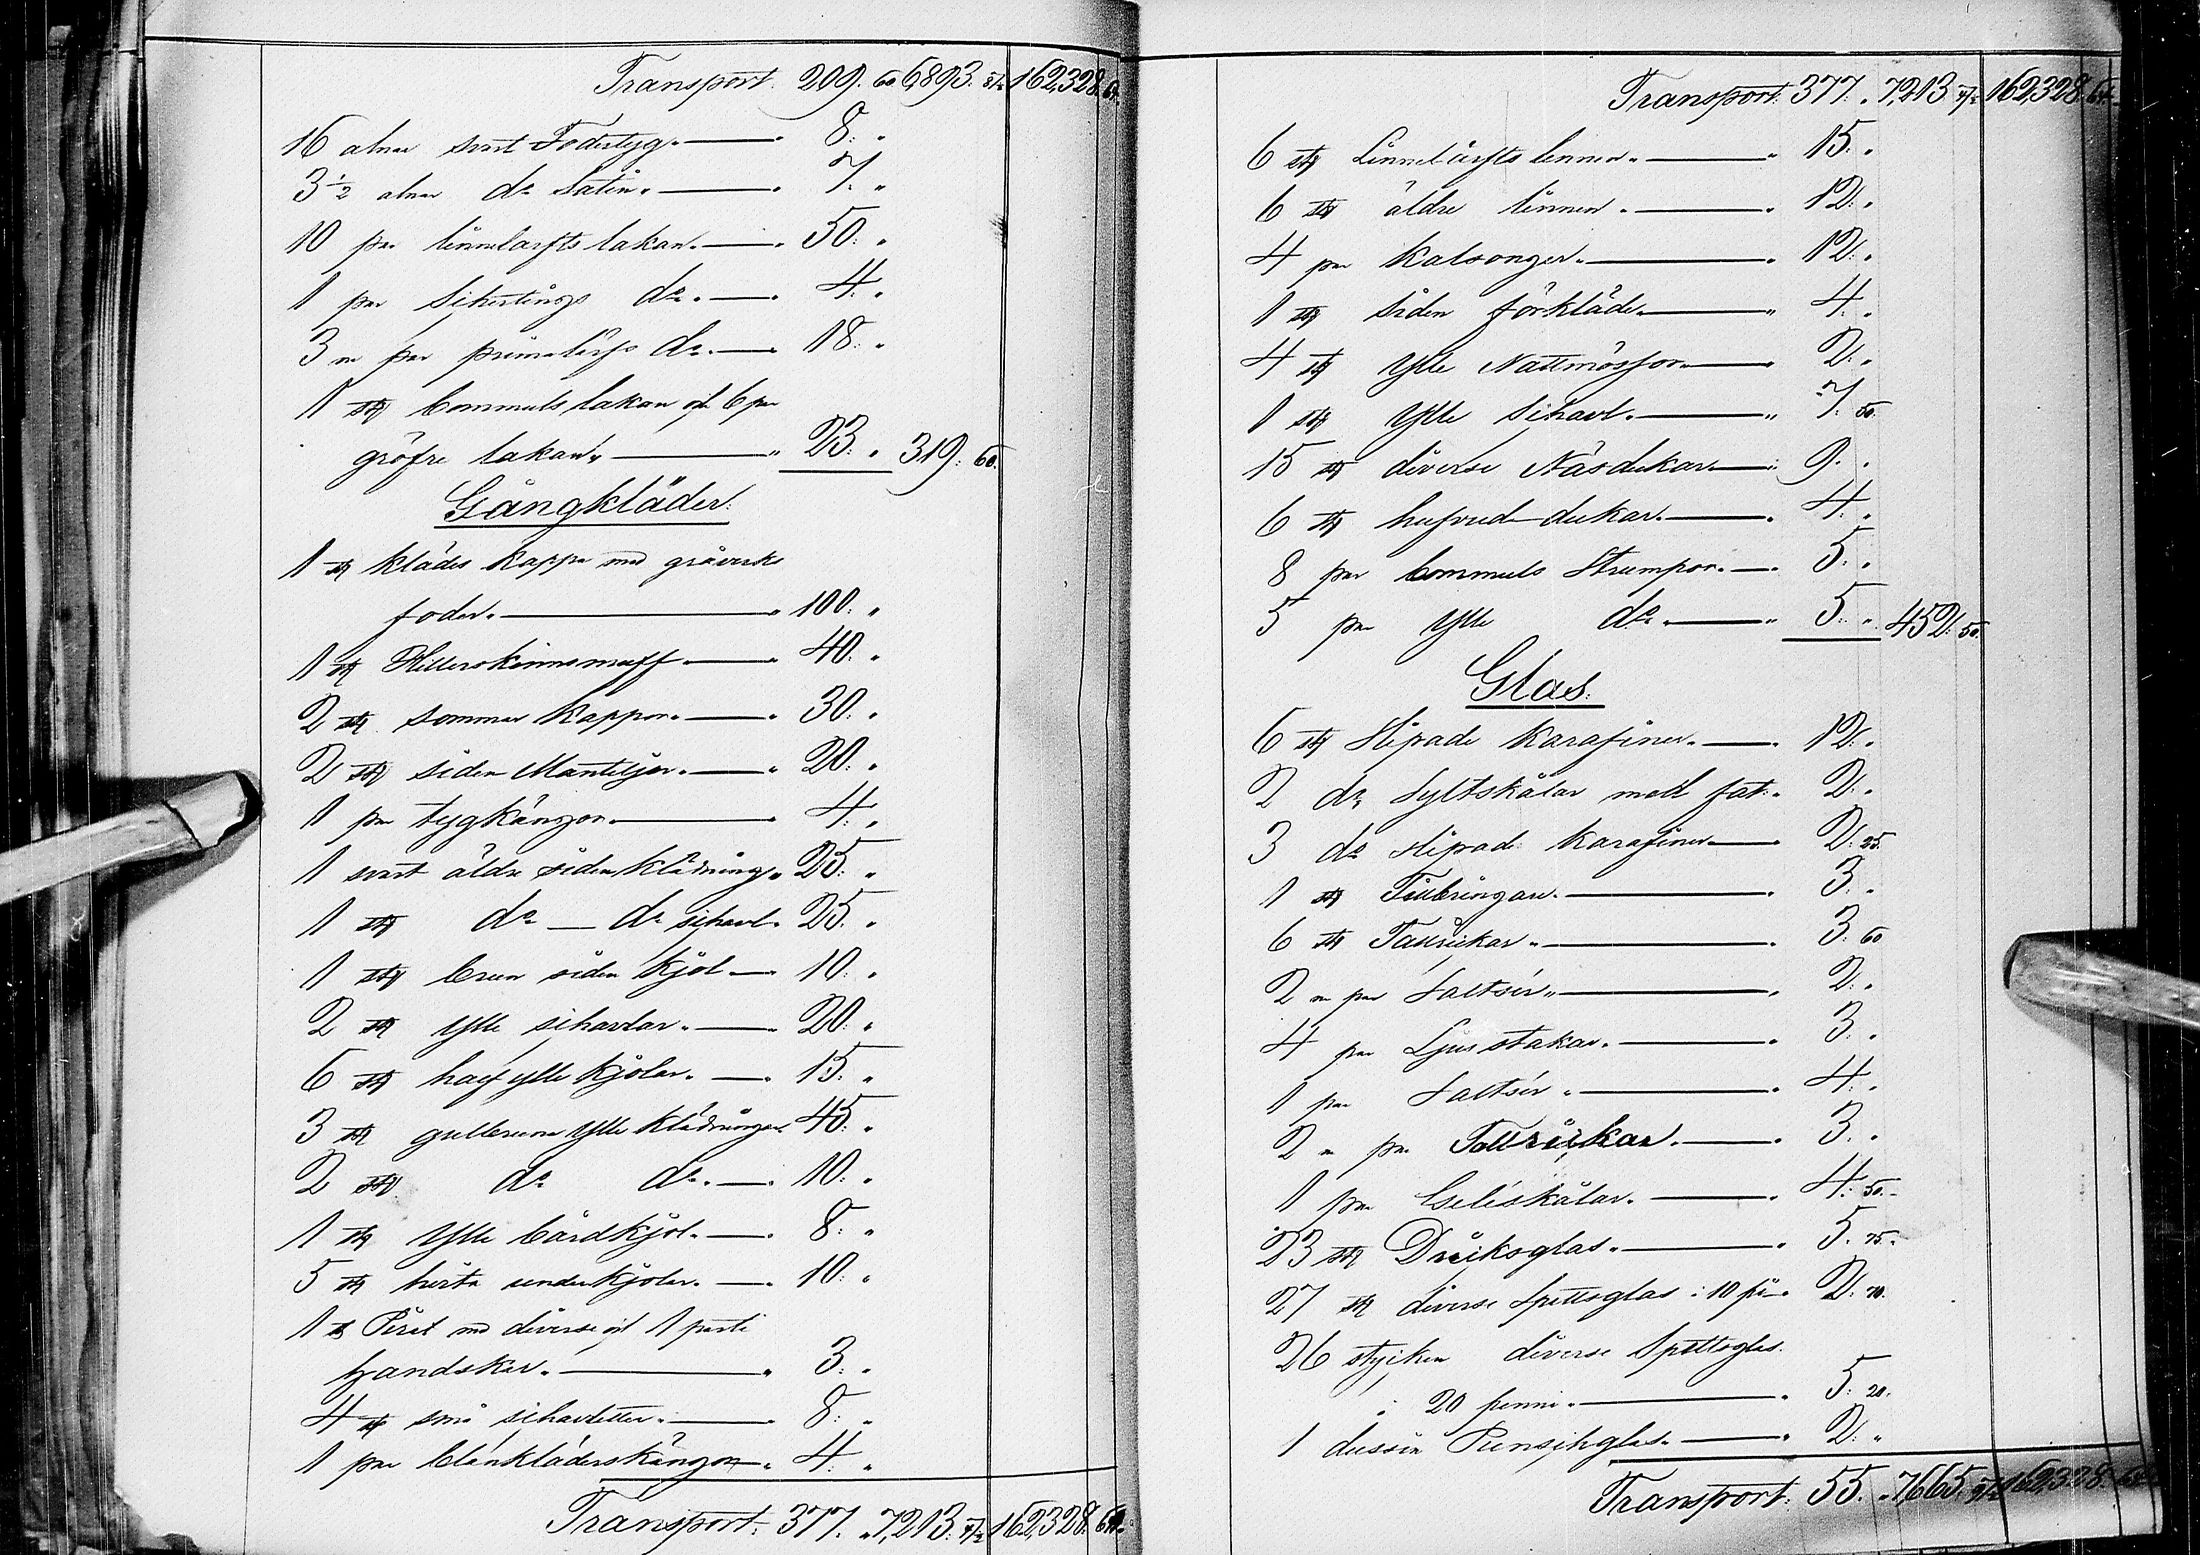 Transport. 209. 60 6,893. 162,328. 64.
16 alnar svart Fodertyg. 8. "
3 1/2 alnar do Satin. 7. "
10 par linnelärfts lakan. 50. "
1 par Schirtings do. 4. "
3 par do. 18. "
1 st bommuls lakan och 6 par
gröfre lakan. 23. " 319. 60.
Gångkläder.
1 st klädes kappa med gråverks
foder. 100. "
1 st Hillerskinnsmuff. 40. "
2 st sommar kappor. 30. "
2 st siden Mantiljer. 20. "
1 par tygkängor. 4. "
1 svart äldre siden klädning. 25. "
1 st do — do schavl. 25. "
1 st brun siden kjol. 10. "
2 st ylle schavlar. 20. "
6 st half ylle kjolar. 15. "
3 st ylle klädningar. 45. "
2 st do do. 10. "
1 st ylle bårdkjol. 8. "
5 st underkjolar. 10. "
1 st med diverse och 1 parti
handskar. 3. "
4 st små schavletter. 8. "
1 par 4. "
Transport. 377. " 7,213. 162,328. 64.
Transport. 377. " 7,213 162,328. 64.
6 st Linnelärfts linnen. 15. "
6 st äldre linnen. 12. "
4 par Kalsonger. 12. "
1 st siden förkläde. 4. "
4 st ylle Nattmössor. 2. "
1 st ylle Schavl. 7. 50.
15 st diverse Näsdukar. 9. "
6 st hufvud dukar. 4. "
8 par bommuls Strumpor. 5. "
5 par ylle do. 5. " 452. 50.
Glas.
6 st Slipade Karafiner. 12. "
2 do Syltskålar med fat. 2. "
3 do slipade Karafiner. 2. 25.
1 st Tillbringare. 3. "
6 st Tallrickar. 3. 60
2 par Saltsör. 2. "
4 par Ljusstakar. 3. "
1 par Saltsör. 4. "
2 par Tallrickar. 3. "
1 par Geléskålar. 4. 50.
23 st Dricksglas. 5. 75.
27 st diverse Spettsglas à 10 pi. 2. 70.
26 stycken diverse Spettsglas
à 20 penni. 5. 20.
1 dussin Punschglas. 2. "
Transport. 55. " 7,665. 162,328. 64.